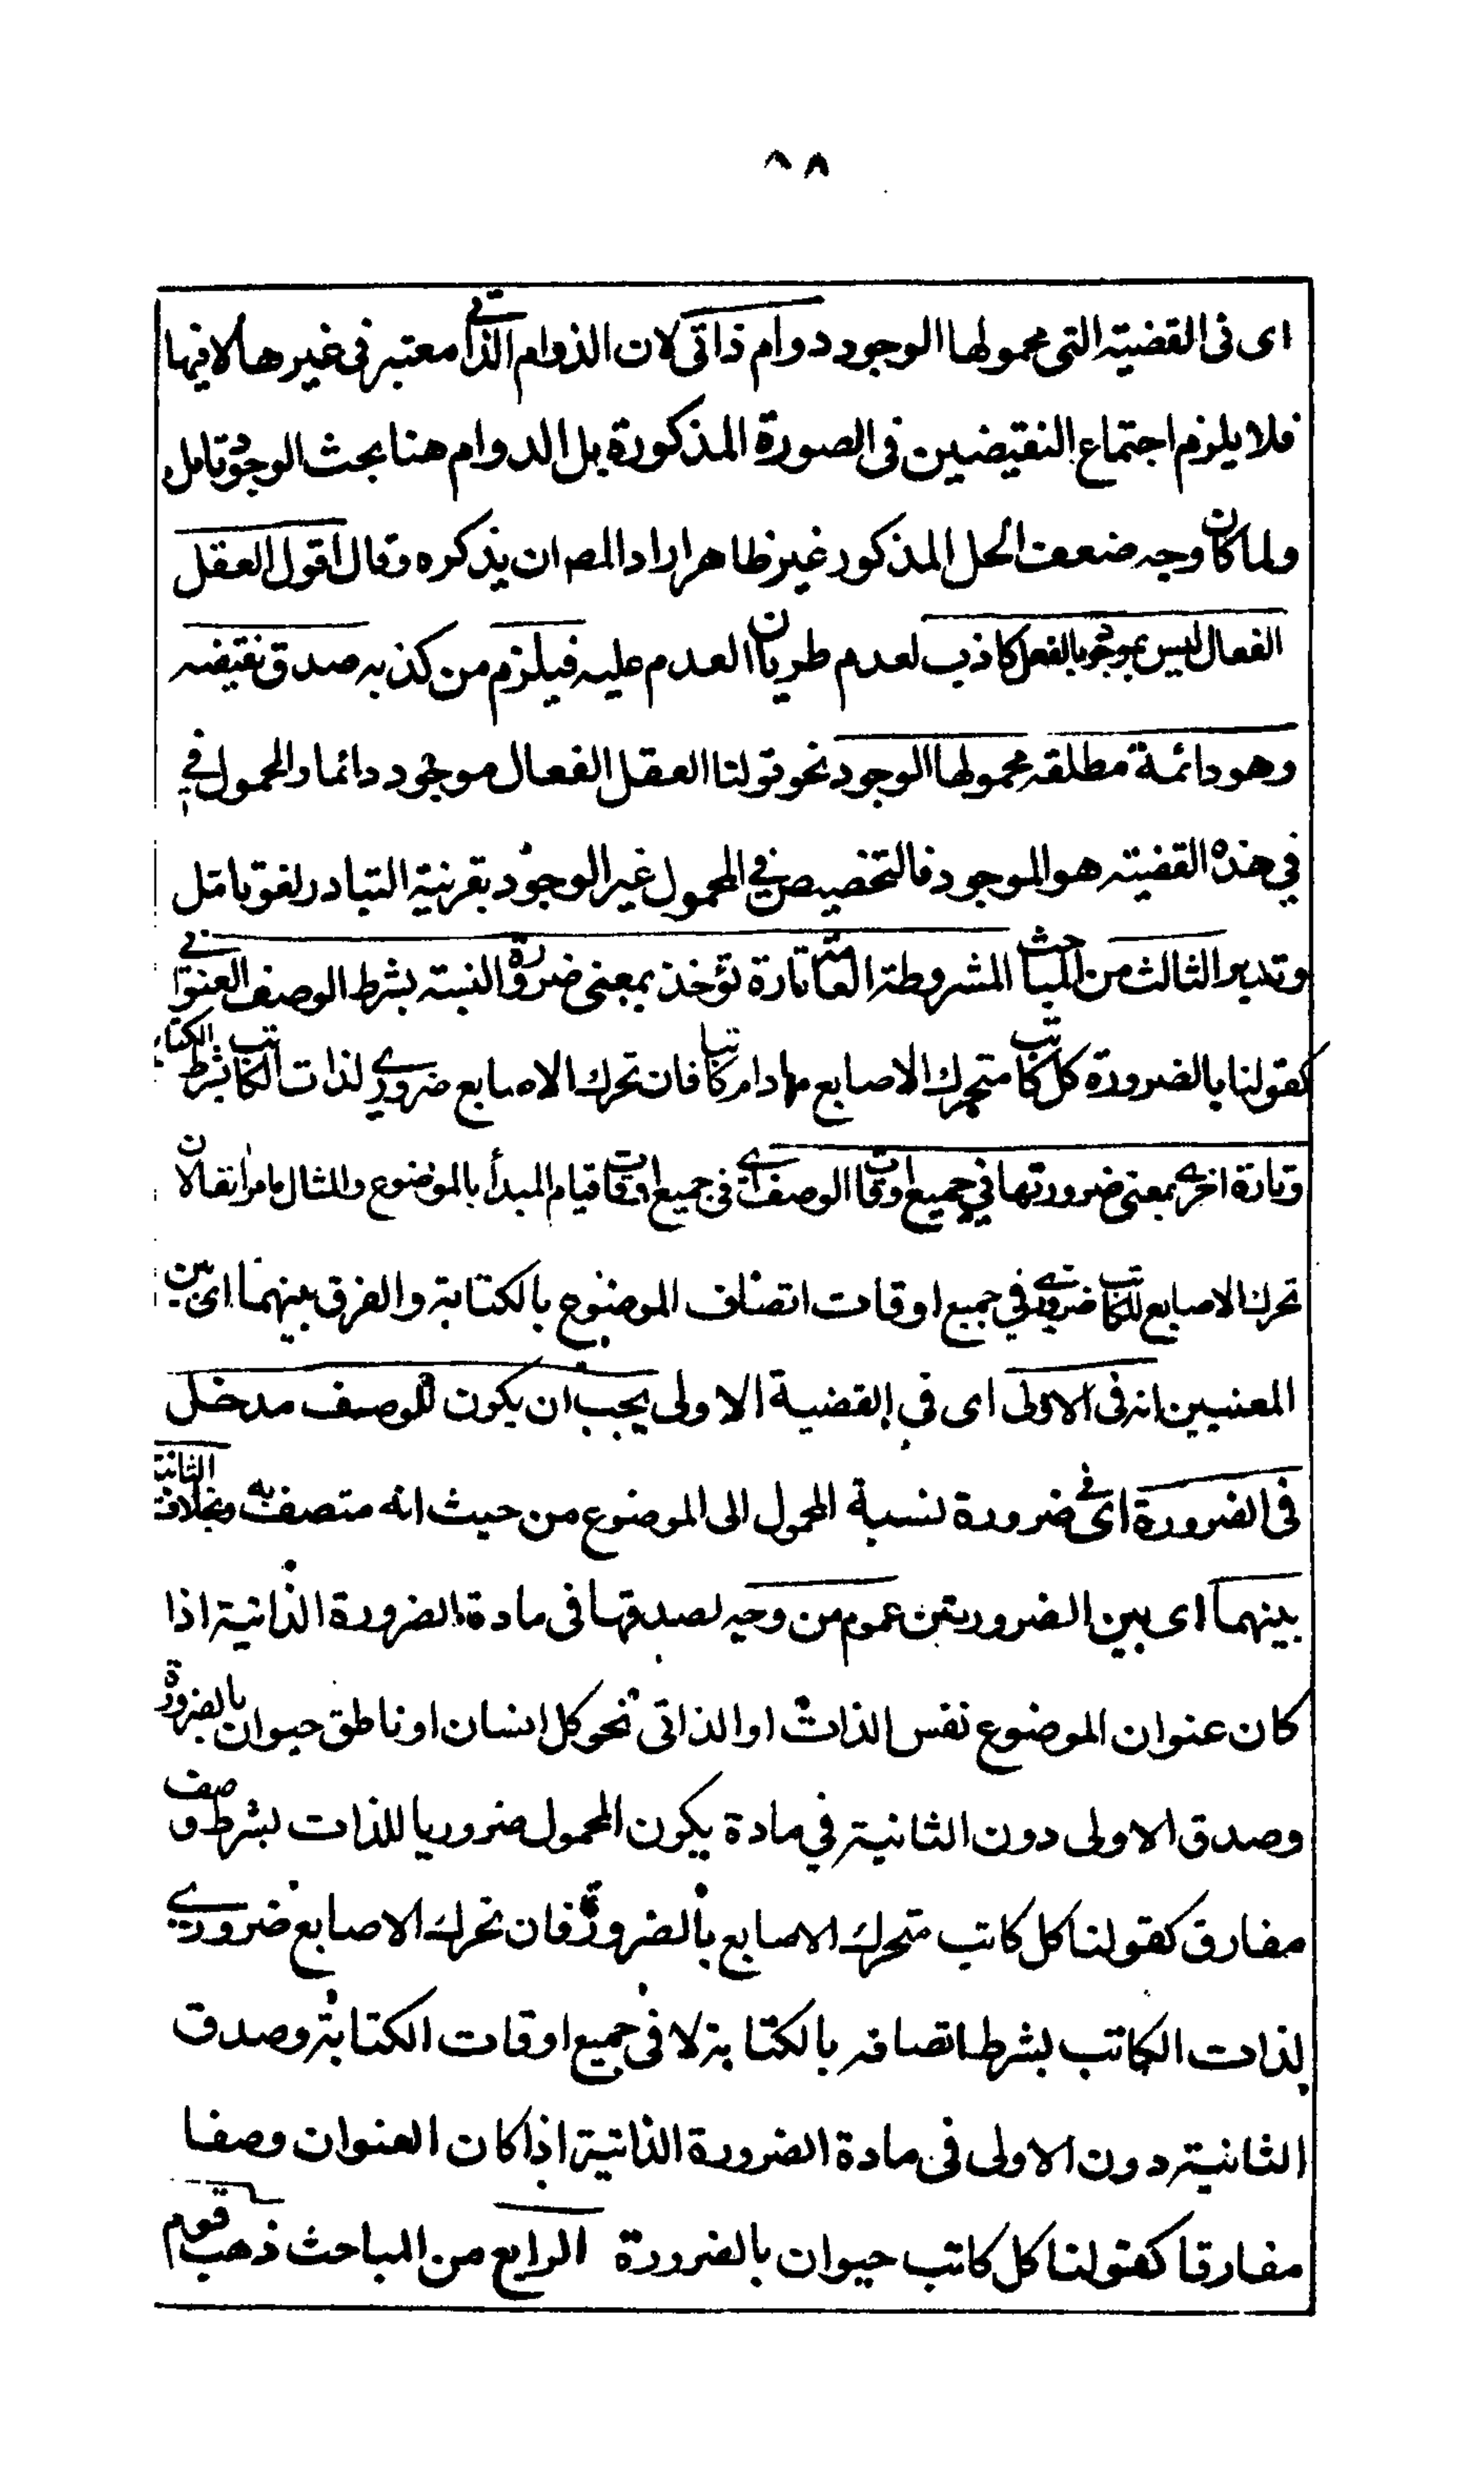 ٨٨
اى فى القضية التى محمولها الوجود دوام ذاتى لان الدوام الذاتي معتبر فى غيرها لا فيها
فلا يلزم اجتماع النقيضين فى الصورة المذكورة بل الدوام هنا بحث الوجود تامل
ولما كان وجه ضعف الحل المذكور غير ظاهر اراد المصـ ان يذكره وقال اقول العقل
الفعال ليس بموجود بالفعل كاذب لعدم طريان العدم عليه فيلزم من كذبه صدق نقيضه
وهو دائمة مطلقه محمولها الوجود نحو قولنا العقل الفعال موجود دائما والمحمول في
في هذه القضيته هو الموجود فالتخصيص في المحمول غير الوجود بقرنية التبادر لغو تامل
وتدبر الثالث من المباحث المشروطة العامة تارة تؤخذ بمعنى ضرورة النسبة بشرط الوصف العنواني
كقولنا بالضرورة كل كاتب متحرك الاصابع مادام كاتبا فان تحرك الاصابع ضروري لذات الكاتب بشرط الكتابة
وتارة اخرى بمعنى ضرورتها في جميع اوقات الوصف اى فى جميع اوقات قيام المبدأ بالموضوع والمثال ما مر انفا لان
تحرك الاصابع للكاتب ضروري في جميع اوقات اتصاف الموضوع بالكتابة والفرق بينهما اى بين
المعنيين انه فى الاولى اى في القضية الاولى يجب ان يكون للوصف مدخل
فى الضرورة اى في ضرورة نسبة المحمول الى الموضوع من حيث انه متصف به بخلاف الثانية
بينهما اى بين الضروريتين عموم من وجه لصدقهما فى مادة الضرورة الذاتية اذا
كان عنوان الموضوع نفس الذات او الذاتى نحو كل انسان او ناطق حيوان بالضرورة
وصدق الاولى دون الثانية في مادة يكون المحمول ضروريا للذات بشرط وصف
مفارق كقولنا كل كاتب متحرك الاصابع بالضرورة فان تحرك الاصابع ضروري
لذات الكاتب بشرط اتصافه بالكتابة لا فى جميع اوقات الكتابة وصدق
الثانية دون الاولى فى مادة الضرورة الذاتية اذا كان العنوان وصفا
مفارقا كقولنا كل كاتب حيوان بالضرورة الرابع من المباحث ذهب قوم